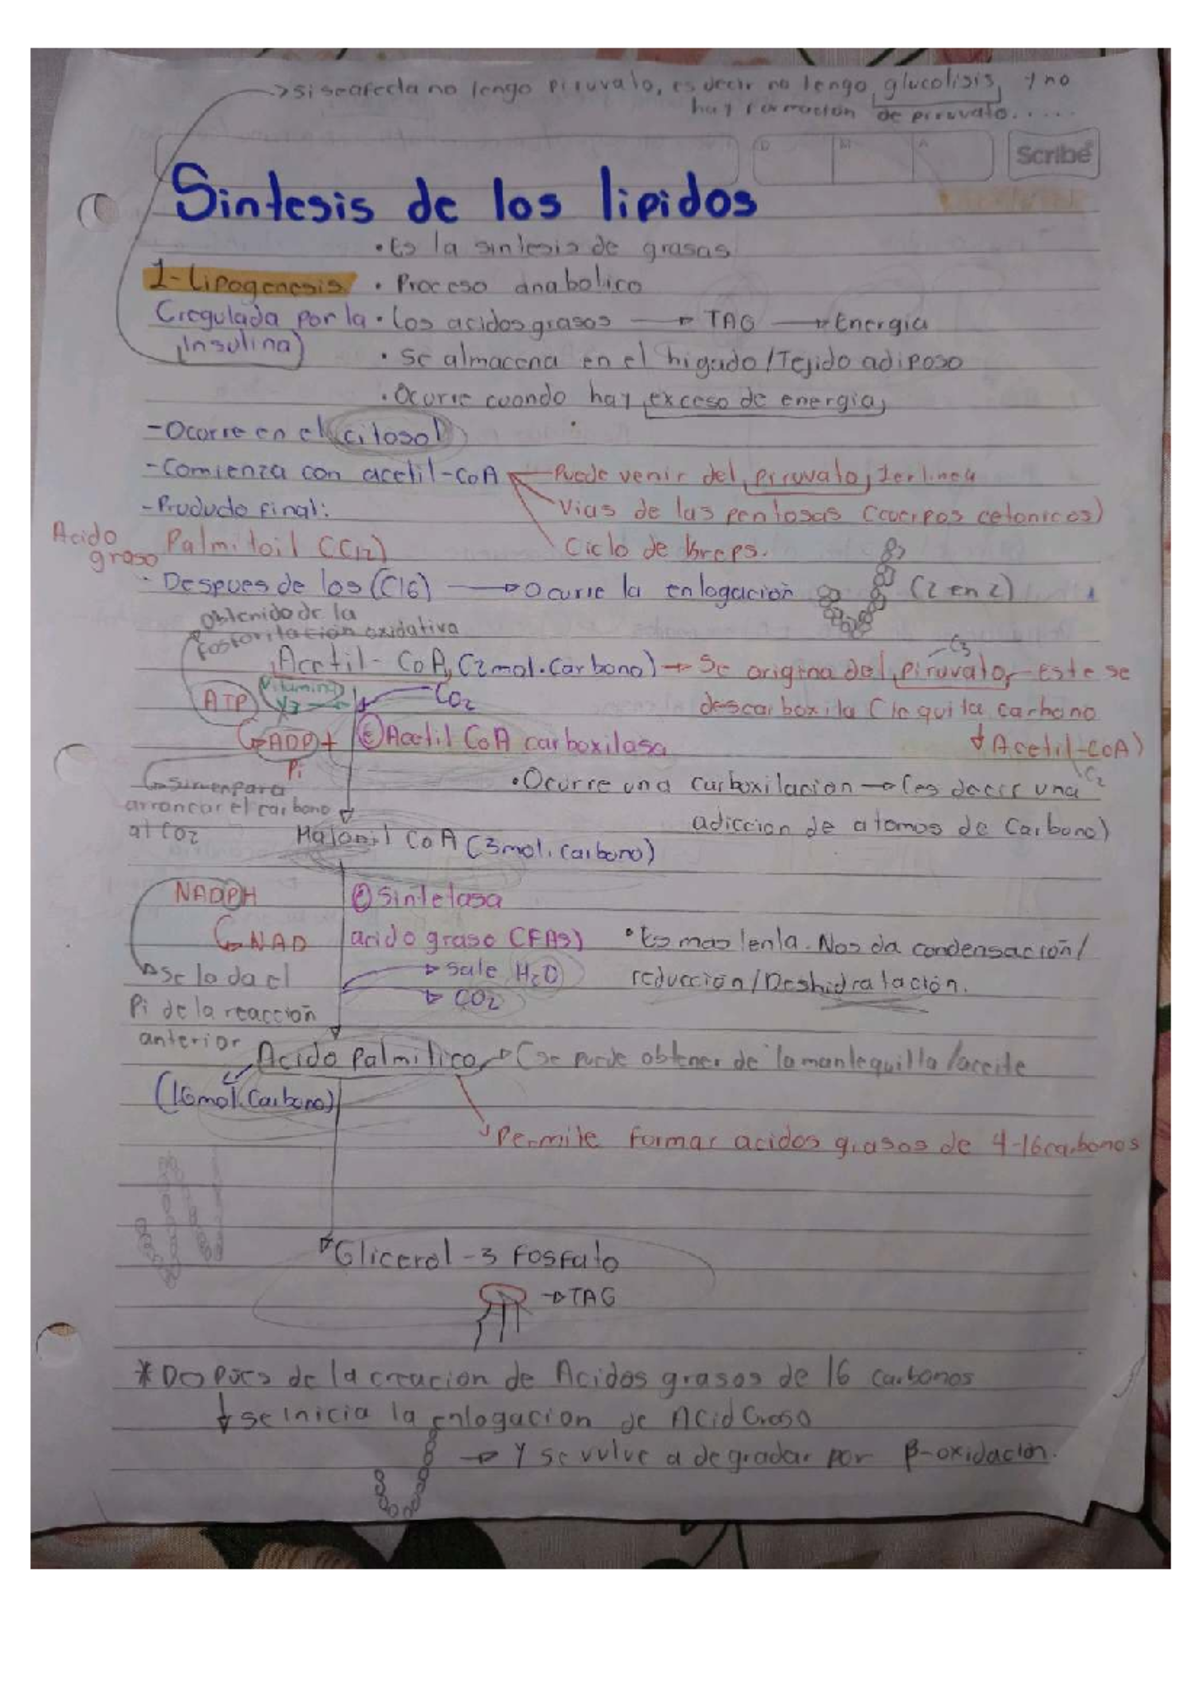 → si se afecta no tengo piruvato, es decir no tengo glucolisis, y no
hay formación de piruvato.....
D M A
Scribe
Sintesis de los lipidos
• Es la sintesis de grasas
1-Lipogenesis • Proceso anabolico
(regulada por la • Los acidos grasos → TAG → Energia
insulina) • Se almacena en el higado/Tejido adiposo
• Ocurre cuando hay exceso de energia,
- Ocurre en el (citosol)
- Comienza con acetil-CoA Puede venir del piruvato, 1er linea
- Producto final: Vias de las pentosas (cuerpos cetonicos)
Acido graso Palmitoil (C12) Ciclo de Kreps.
- Despues de los (C16) → Ocurre la enlogacion (2 en 2)
obtenido de la
fosforilación oxidativa
C3
Acetil-CoA, (2mol.Carbono) → Se origina del piruvato, Este se
ATP Vitamina CO2 descarboxila (le quita carbono
ADP + Pi ① Acetil CoA carboxilasa Acetil-CoA)
C2
→ sirven para • Ocurre una carboxilacion → (es decir una
arrancar el carbono
al CO2 adiccion de atomos de Carbono)
Malonil CoA (3mol.carbono)
NADPH ② Sintetasa
NAD acido graso (FAS) • Es mas lenta. Nos da condensación/
→ se la da el → Sale H2O reducción/Deshidratación.
Pi de la reacción → CO2
anterior
Acido Palmitico → (se puede obtener de la mantequilla/aceite
(16mol.Carbono)
Permite formar acidos grasos de 4-16carbonos
Glicerol-3 Fosfato
→ TAG
* Dopues de la creacion de Acidos grasos de 16 carbonos
↓ se inicia la enlogacion de Acid Graso
→ Y se vulve a degradar por β-oxidación.